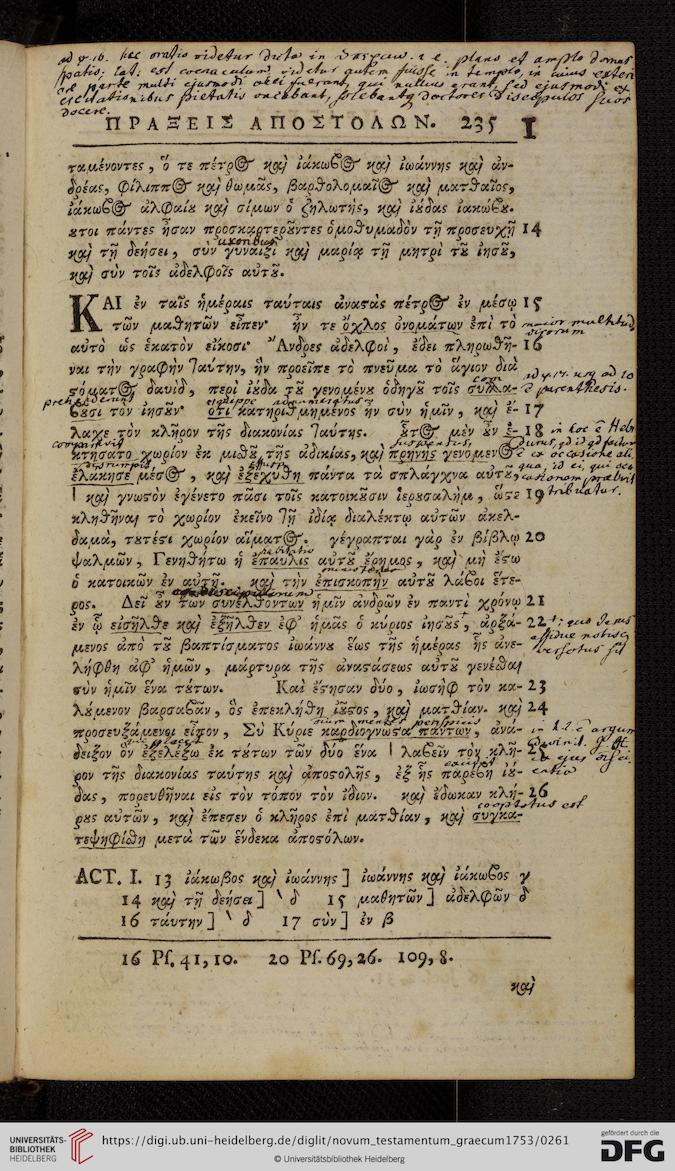 ad v. 16. hec oratio videtur dicta in
spatio; lat: est coenaculum videtur autem fuisse in templo, in cuius exteri
ore parte multi ejusmodi fuerant, qui nullius erant, sed ejusmodi
exercitationibus pietatis vacabant, solebantq Doctores Discipulos suos
docere.
ΠΡΑΞΕΙΣ ΑΠΟΣΤΟΛΩΝ. 235 I
ταμένοντες, ὅ τε πέτρος καὶ ἰάκωβος καὶ ἰωάννης καὶ ἀν-
δρέας, φίλιππος καὶ θωμᾶς, βαρθολομαῖος καὶ ματθαῖος,
ἰάκωβος ἀλφαίου καὶ σίμων ὁ ζηλωτὴς, καὶ ἰούδας ἰακώβου.
οὗτοι πάντες ἦσαν προσκαρτεροῦντες ὁμοθυμαδὸν τῇ προσευχῇ 14
uxoribus
καὶ τῇ δεήσει, σὺν γυναιξὶ καὶ μαρίᾳ τῇ μητρὶ τοῦ ἰησοῦ,
καὶ σὺν τοῖς ἀδελφοῖς αὐτοῦ.
ΚΑΙ ἐν ταῖς ἡμέραις ταύταις ἀναστὰς πέτρος ἐν μέσῳ 15
τῶν μαθητῶν εἶπεν· ἦν τε ὄχλος ὀνομάτων ἐπὶ τὸ
αὐτὸ ὡς ἑκατὸν εἴκοσι· Ἄνδρες ἀδελφοὶ, ἔδει πληρωθῆ- 16
ναι τὴν γραφὴν ταύτην, ἣν προεῖπε τὸ πνεῦμα τὸ ἅγιον διὰ
στόματος δαυὶδ, περὶ ἰούδα τοῦ γενομένου ὁδηγοῦ τοῖς συλλα-
βοῦσι τὸν ἰησοῦν· ὅτι κατηριθμημένος ἦν σὺν ἡμῖν, καὶ ἔ- 17
λαχε τὸν κλῆρον τῆς διακονίας ταύτης. οὗτος μὲν οὖν ἐ- 18
κτήσατο χωρίον ἐκ μισθοῦ τῆς ἀδικίας, καὶ πρηνὴς γενόμενος
ἐλάκησε μέσος, καὶ ἐξεχύθη πάντα τὰ σπλάγχνα αὐτοῦ,
| καὶ γνωστὸν ἐγένετο πᾶσι τοῖς κατοικοῦσιν ἱερουσαλὴμ, ὥστε 19
κληθῆναι τὸ χωρίον ἐκεῖνο τῇ ἰδίᾳ διαλέκτῳ αὐτῶν ἀκελ-
δαμὰ, τουτέστι χωρίον αἵματος. γέγραπται γὰρ ἐν βίβλῳ 20
ψαλμῶν, Γενηθήτω ἡ ἔπαυλις αὐτοῦ ἔρημος, καὶ μὴ ἔστω
ὁ κατοικῶν ἐν αὐτῇ. καὶ τὴν ἐπισκοπὴν αὐτοῦ λάβοι ἕτε-
ρος. Δεῖ οὖν τῶν συνελθόντων ἡμῖν ἀνδρῶν ἐν παντὶ χρόνῳ 21
ἐν ᾧ εἰσῆλθε καὶ ἐξῆλθεν ἐφ᾽ ἡμᾶς ὁ κύριος ἰησοῦς, ἀρξά- 22
μενος ἀπὸ τοῦ βαπτίσματος ἰωάννου ἕως τῆς ἡμέρας ἧς ἀνε-
λήφθη ἀφ᾽ ἡμῶν, μάρτυρα τῆς ἀναστάσεως αὐτοῦ γενέσθαι
σὺν ἡμῖν ἕνα τούτων. Καὶ ἔστησαν δύο, ἰωσὴφ τὸν κα- 23
λούμενον βαρσαβᾶν, ὃς ἐπεκλήθη ἰοῦστος, καὶ ματθίαν. καὶ 24
προσευξάμενοι εἶπον, Σὺ Κύριε καρδιογνῶστα πάντων, ἀνά-
δειξον ὃν ἐξελέξω ἐκ τούτων τῶν δύο ἕνα | λαβεῖν τὸν κλῆ- 25
ρον τῆς διακονίας ταύτης καὶ ἀποστολῆς, ἐξ ἧς παρέβη ἰού-
δας, πορευθῆναι εἰς τὸν τόπον τὸν ἴδιον. καὶ ἔδωκαν κλή- 26
cooptatus est
ρους αὐτῶν, καὶ ἔπεσεν ὁ κλῆρος ἐπὶ ματθίαν, καὶ συγκα-
τεψηφίσθη μετὰ τῶν ἕνδεκα ἀποστόλων.
ACT. I. 13 ἰάκωβος καὶ ἰωάννης] ἰωάννης καὶ ἰάκωβος γ
14 καὶ τῇ δεήσει] ‵ δ 15 μαθητῶν] ἀδελφῶν δ
16 ταύτην] ‵ δ 17 σὺν] ἐν β
16 Ps. 41, 10. 20 Ps. 69, 26. 109, 8.
καὶ
UNIVERSITÄTS-
BIBLIOTHEK
HEIDELBERG
https://digi.ub.uni-heidelberg.de/diglit/novum_testamentum_graecum1753/0261
© Universitätsbibliothek Heidelberg
gefördert durch die
DFG